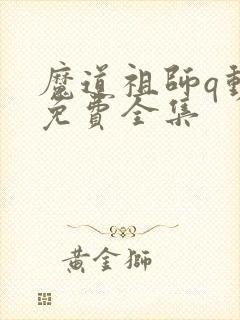 魔道祖師q動
免費全集
黃金獅